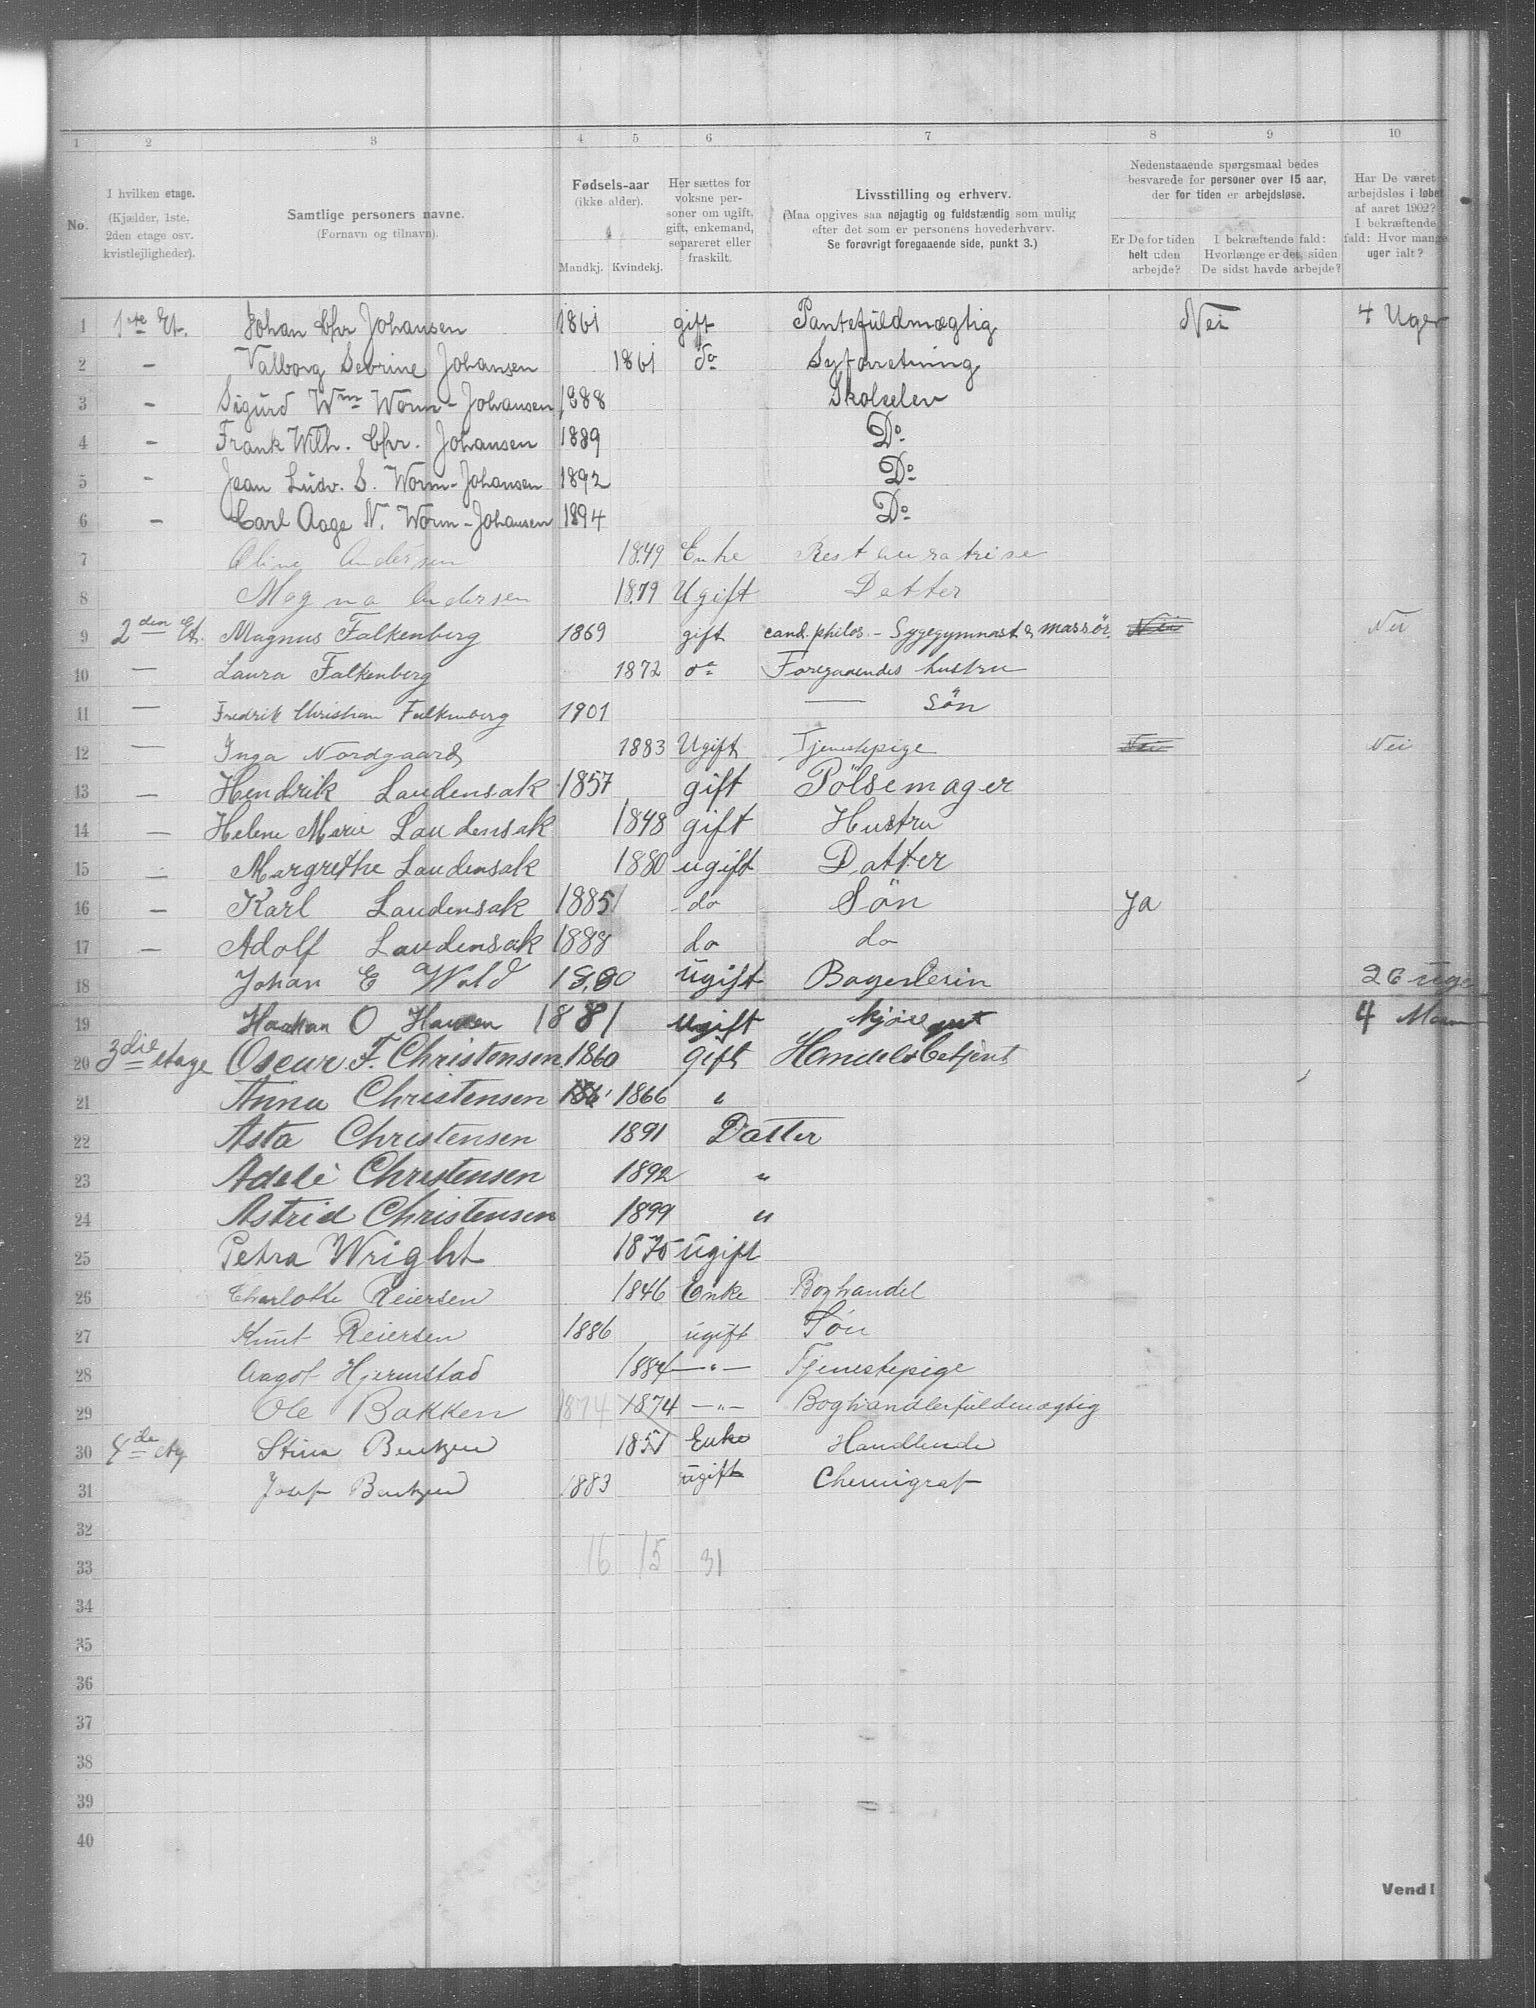 1 2 3 4 5 6 7 8 9 10
No.
I hvilken etage. (Kjælder, 1ste, 2den etage osv. kvistlejligheder).
Samtlige personers navne. (Fornavn og tilnavn).
Fødsels-aar (ikke alder). Mandkj. Kvindekj.
Her sættes for voksne personer om ugift, gift, enkemand, separeret eller fraskilt.
Livsstilling og erhverv. (Maa opgives saa nøjagtig og fuldstændig som mulig efter det som er personens hovederhverv. Se forøvrigt foregaaende side, punkt 3.)
Nedenstaaende spørgsmaal bedes besvarede for personer over 15 aar, der for tiden er arbejdsløse.
Er De for tiden helt uden arbejde?
I bekræftende fald: Hvorlænge er det, siden De sidst havde arbejde?
Har De været arbejdsløs i løbet af aaret 1902? I bekræftende fald: Hvor mange uger ialt?
1 1ste Et. Johan Chr Johansen 1861 gift Pantefuldmægtig Nei 4 Uger
2 - Valborg Sebrine Johansen 1861 Do Syforretning
3 - Sigurd Wm Worm-Johansen 1888 Skolelev
4 - Frank Wilh. Chr. Johansen 1889 Do
5 - Jean Ludv. S. Worm-Johansen 1892 Do
6 - Carl Aage N. Worm-Johansen 1894 Do
7 Oline Andersen 1849 Enke Restauratrise
8 Magna Andersen 1879 Ugift Datter
9 2den Et. Magnus Falkenberg 1869 gift cand. philos. - Sygegymnast & massør. Nei Nei
10 - Laura Falkenberg 1872 do Foregaaendes hustru
11 - Fredrik Christian Falkenberg 1901 — Søn
12 - Inga Nordgaard 1883 Ugift Tjenestepige Nei Nei
13 - Hendrik Laudensak 1857 gift Pölsemager
14 - Helene Marie Laudensak 1848 gift Hustru
15 - Margrethe Laudensak 1880 ugift Datter
16 - Karl Laudensak 1885 do Sön Ja
17 - Adolf Laudensak 1888 do do
18 Johan E Wold 1880 ugift 26 uge
19 Haakan O Hansen 1881 ugift 4
20 3die etage Oscar F. Christensen 1860 gift Handelsbetjent
21 Anna Christensen 1866 "
22 Asta Christensen 1891 Datter
23 Adele Christensen 1892 "
24 Astrid Christensen 1899 "
25 Petra Wright 1875 ugift
26 Charlotte Reiersen 1846 Enke Boghandel
27 Knut Reiersen 1886 ugift Søn
28 Aagot Hjermstad 1884 —"— Tjenestepige
29 Ole Bakken 1874 1874 —"— Boghandlerfuldmægtig
30 4de etg Stina Bentzen 1851 Enke Handlende
31 Josef Bentzen 1883 ugift Chemigraf
32
33 16 15 31
34
35
36
37
38
39
40
Vend!